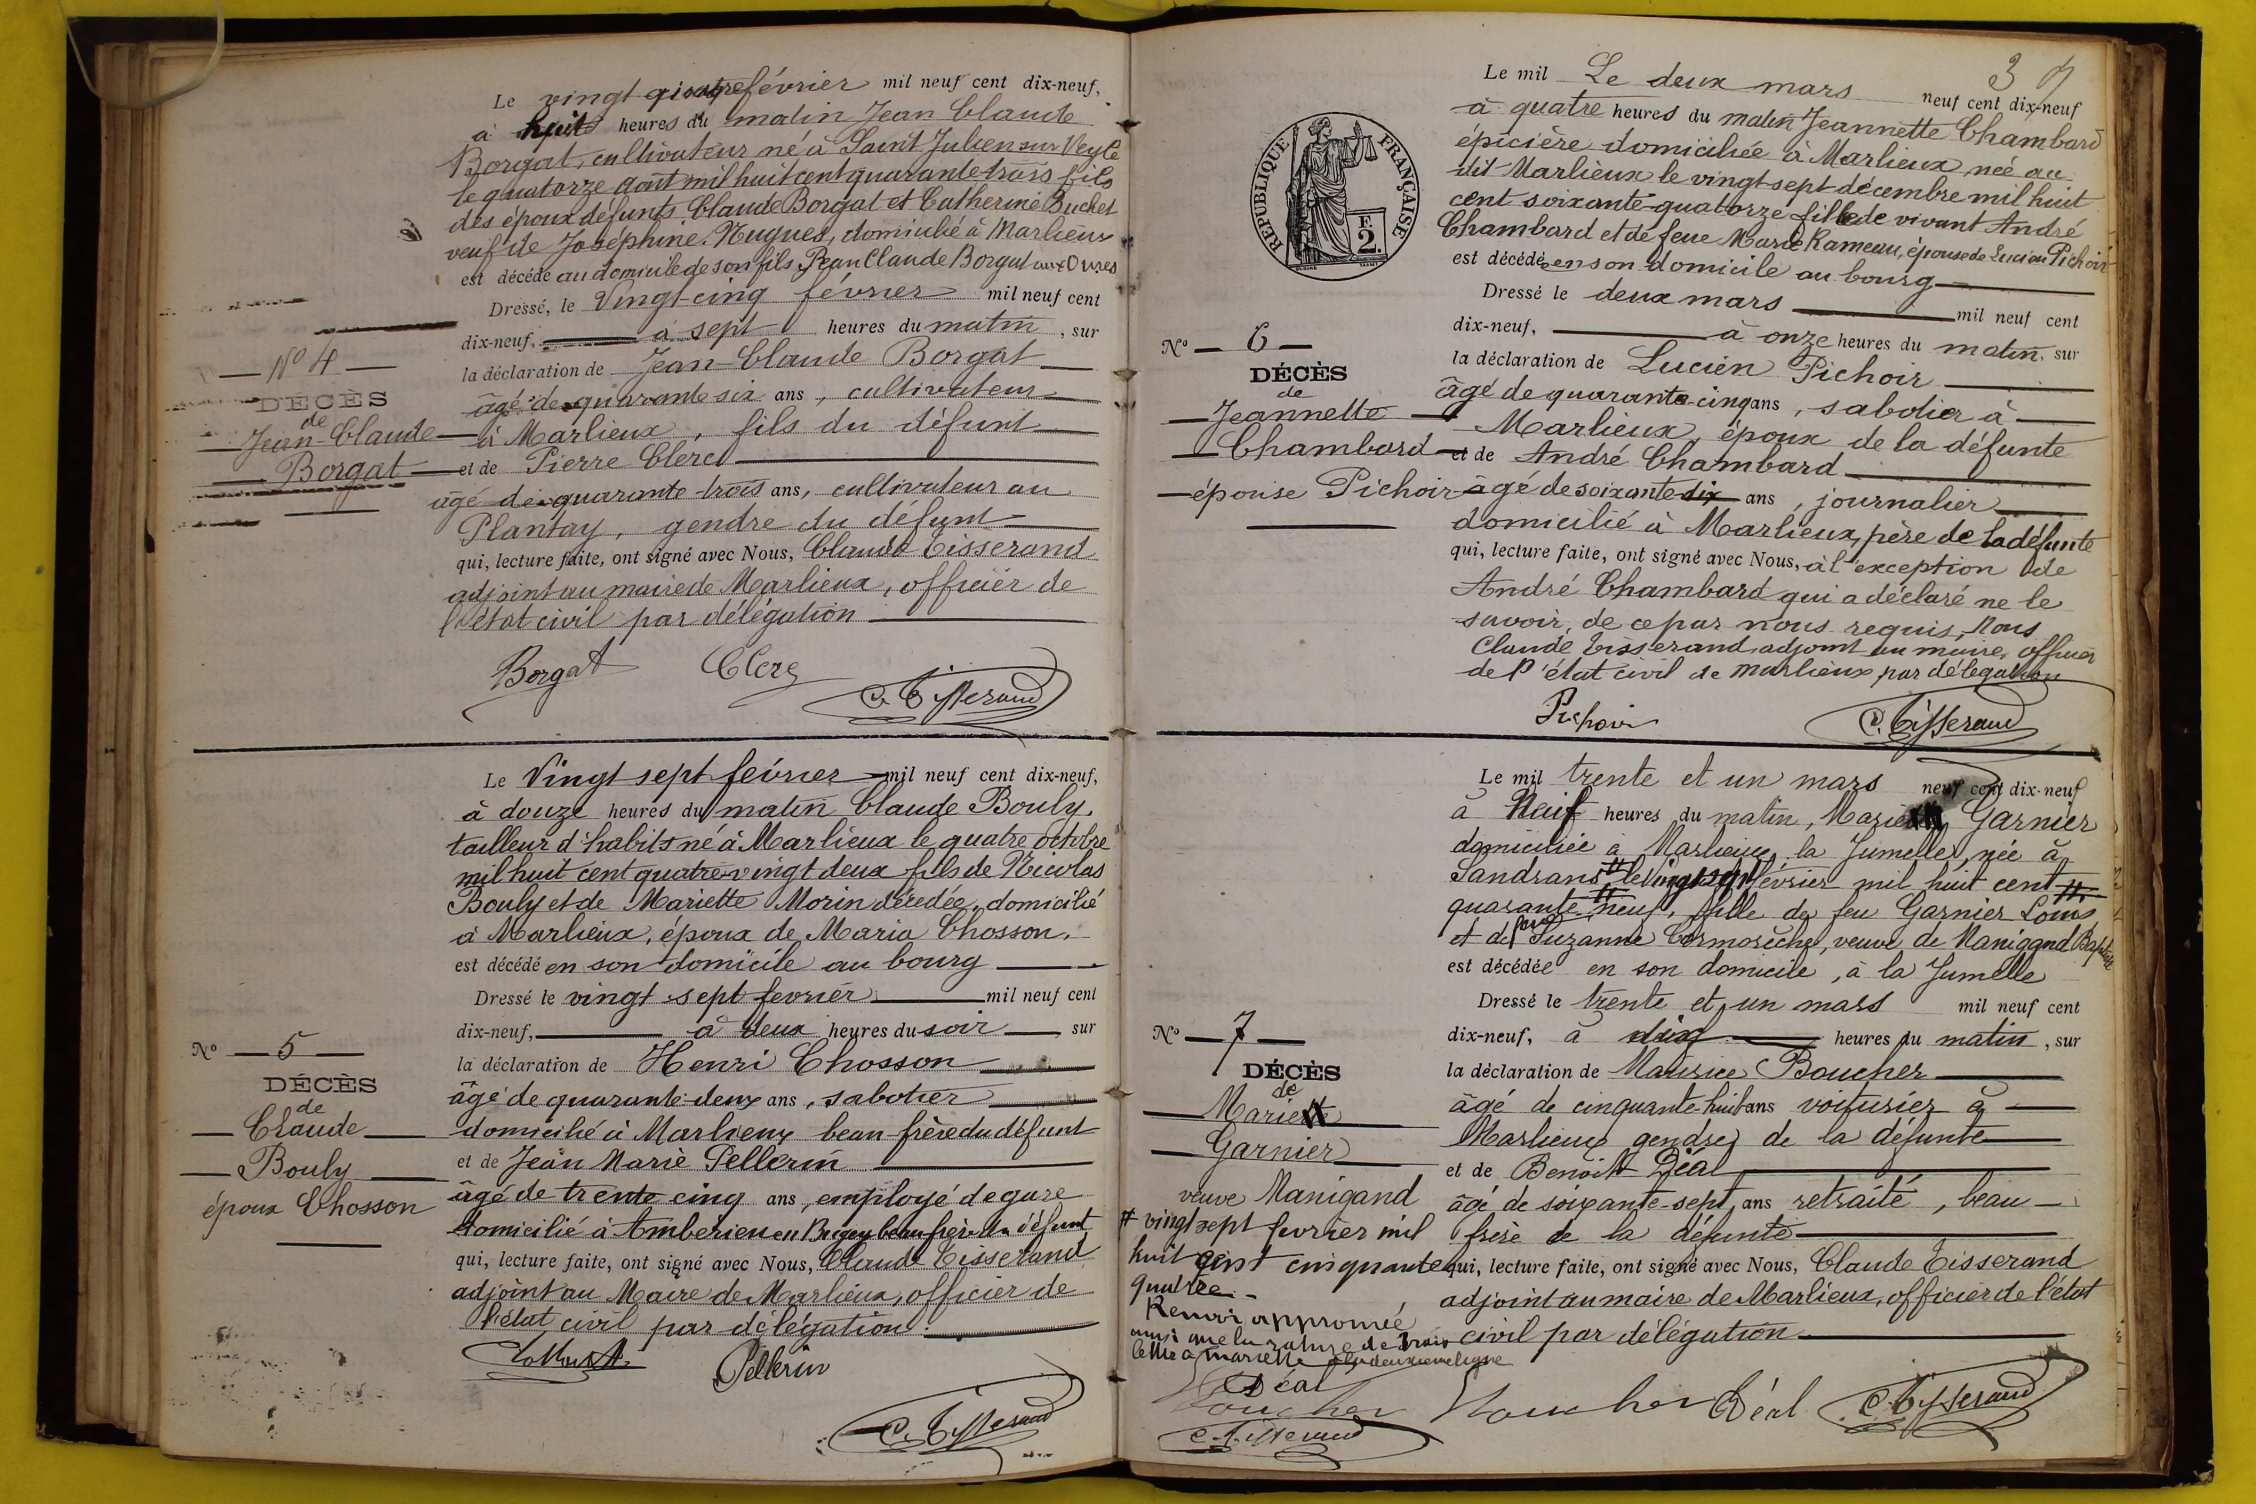 Le vingt quatre février mil neuf cent dix-neuf,
à huit heures du matin Jean Claude
Borgat, cultivateur né à Saint Julien sur Veyle
le quatorze août mil huit cent quarante-trois fils
des époux défunts Claude Borgat et Catherine Buchet
veuf de Joséphine Nugues, domicilié à Marlieux
est décédé au domicile de son fils Jean Claude Borgat aux
Dressé, le Vingt-cinq février mil neuf cent
dix-neuf, à sept heures du matin, sur
N° 4
la déclaration de Jean-Claude Borgat
DÉCÈS
de
Jean-Claude
Borgat
âgé de quarante six ans, cultivateur
à Marlieux, fils du défunt
et de Pierre Clerc
âgé de quarante trois ans, cultivateur au
Plantay, gendre du défunt
qui, lecture faite, ont signé avec Nous, Claude Tisserand
adjoint au maire de Marlieux, officier de
l'état civil par délégation
Borgat Clerc
C. Tisserand
Le Vingt sept février mil neuf cent dix-neuf,
à douze heures du matin Claude Bouly,
tailleur d'habits né à Marlieux le quatre octobre
mil huit cent quatre-vingt deux fils de Nicolas
Bouly et de Mariette Morin décédée, domicilié
à Marlieux, époux de Maria Chosson,
est décédé en son domicile au bourg
Dressé le vingt sept février mil neuf cent
dix-neuf, à deux heures du soir sur
N° 5
DÉCÈS
de
Claude
Bouly
époux Chosson
la déclaration de Henri Chosson
âgé de quarante-deux ans, sabotier
domicilié à Marlieux beau-frère du défunt
et de Jean Marie Pellerin
âgé de trente cinq ans, employé de gare
domicilié à Ambérieu en Bugey beau frère du défunt
qui, lecture faite, ont signé avec Nous, Claude Tisserand
adjoint au Maire de Marlieux, officier de
l'état civil par délégation.
Pellerin
C. Tisserand
3
Le mil Le deux mars neuf cent dix-neuf
à quatre heures du matin Jeannette Chambard
épicière domiciliée à Marlieux, née au
dit Marlieux le vingt-sept décembre mil huit
cent soixante-quatorze fille de vivant André
Chambard et de feue Marie Rameau, épouse de Lucien Pichoir
est décédée en son domicile au bourg
RÉPUBLIQUE FRANÇAISE
F. 2.
Dressé le deux mars mil neuf cent
dix-neuf, à onze heures du matin, sur
N° 6
DÉCÈS
de
Jeannette
Chambard
épouse Pichoir
la déclaration de Lucien Pichoir
âgé de quarante-cinq ans, sabotier à
Marlieux, époux de la défunte
et de André Chambard
âgé de soixante-dix ans, journalier
domicilié à Marlieux, père de la défunte
qui, lecture faite, ont signé avec Nous, à l'exception de
André Chambard qui a déclaré ne le
savoir, de ce par nous requis, Nous
Claude Tisserand adjoint au maire, officier
de l'état civil de Marlieux par délégation
Pichoir C. Tisserand
Le mil trente et un mars neuf cent dix-neuf
à Neuf heures du matin, Marie Garnier
domiciliée à Marlieux, la Jumelle, née à
Sandrans # le vingt sept février mil huit cent #
quarante neuf, fille de feu Garnier Louis
et de feue Suzanne Cormorèche, veuve de Manigand Baptiste
est décédée en son domicile, à la Jumelle
Dressé le trente et un mars mil neuf cent
dix-neuf, à dix heures du matin, sur
N° 7
DÉCÈS
de
Marie
Garnier
veuve Manigand
la déclaration de Maurice Boucher
âgé de cinquante-huit ans voiturier à
Marlieux gendre de la défunte
et de Benoit Déal
âgé de soixante-sept ans retraité, beau-
frère de la défunte
qui, lecture faite, ont signé avec Nous, Claude Tisserand
adjoint au maire de Marlieux, officier de l'état
civil par délégation
# vingt sept février mil
huit cent cinquante
quatre.-
Renvoi approuvé
ainsi que la rature de trois
lettre à Mariette à la deuxième ligne
Déal
Boucher
C. Tisserand
Boucher Déal C. Tisserand